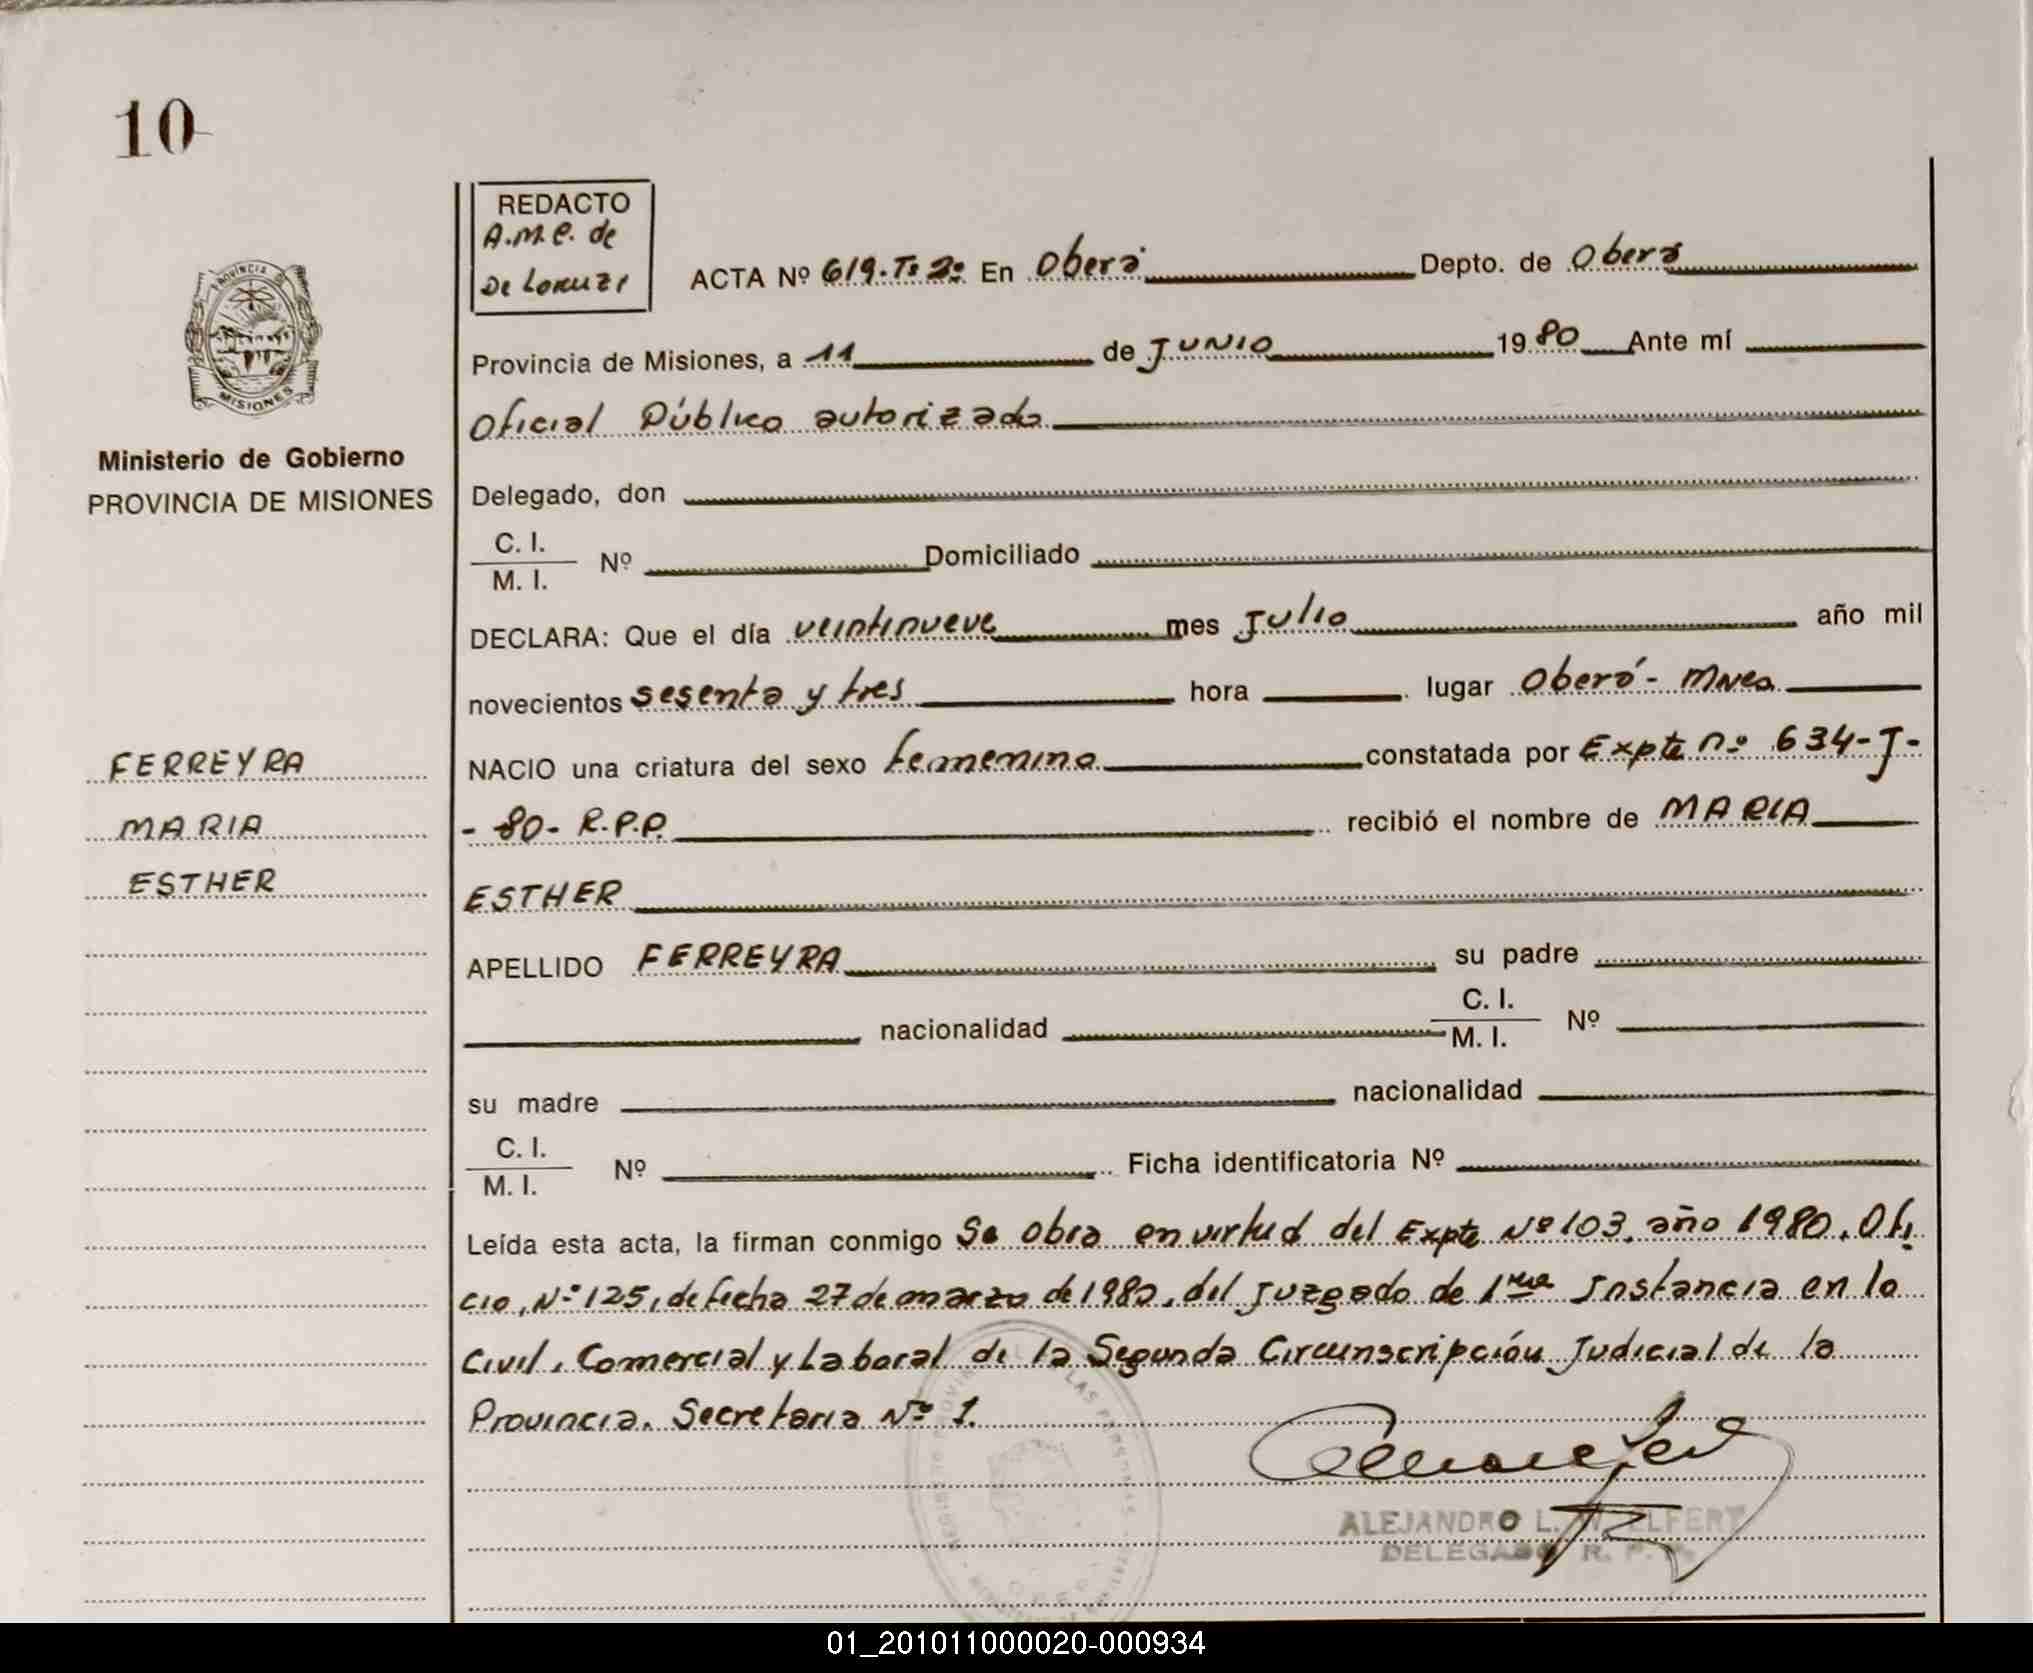 10
REDACTO
A.M.C. de
De Loruzi
ACTA Nº 619. Tº 2º En Oberá Depto. de Oberá
Provincia de Misiones, a 11 de JUNIO 1980 Ante mí
Oficial Público autorizado
Delegado, don
C. I.
M. I.
Nº Domiciliado
DECLARA: Que el día veintinueve mes Julio año mil
novecientos sesenta y tres hora lugar Oberá - Mnes.
NACIO una criatura del sexo femenino constatada por Expte nº 634-J-
- 80 - R.P.P. recibió el nombre de MARIA
ESTHER
APELLIDO FERREYRA su padre
nacionalidad C. I.
M. I. Nº
su madre nacionalidad
C. I.
M. I.
Nº Ficha identificatoria Nº
Leída esta acta, la firman conmigo Se obra en virtud del Expte Nº 103, año 1980, Ofi
cio, Nº 125, de fecha 27 de marzo de 1980, del Juzgado de 1ra Instancia en lo
Civil, Comercial y Laboral de la Segunda Circunscripción Judicial de la
Provincia. Secretaria Nº 1.
ALEJANDRO L. W. ELFERT
DELEGADO R. P. P.
PROVINCIA DE
MISIONES
Ministerio de Gobierno
PROVINCIA DE MISIONES
FERREYRA
MARIA
ESTHER
01_201011000020-000934